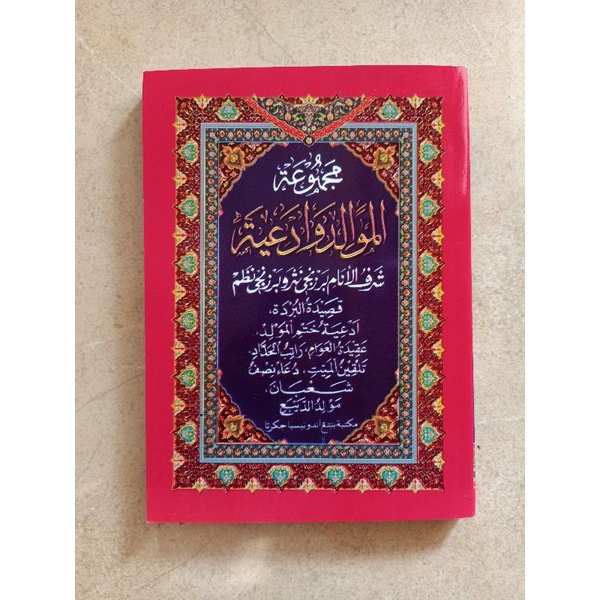 مجموعة
الموالد وأدعية
شرف الأنام برزنجي نثر وبرزنجي نظم
قصيدة البردة،
ادعية ختم المولد
عقيدة العوام، راتب الحداد،
تلقين الميت، دعاء نصف
شعبان،
مولد الديبع
مكتبة بنتغ اندونيسيا جكرتا